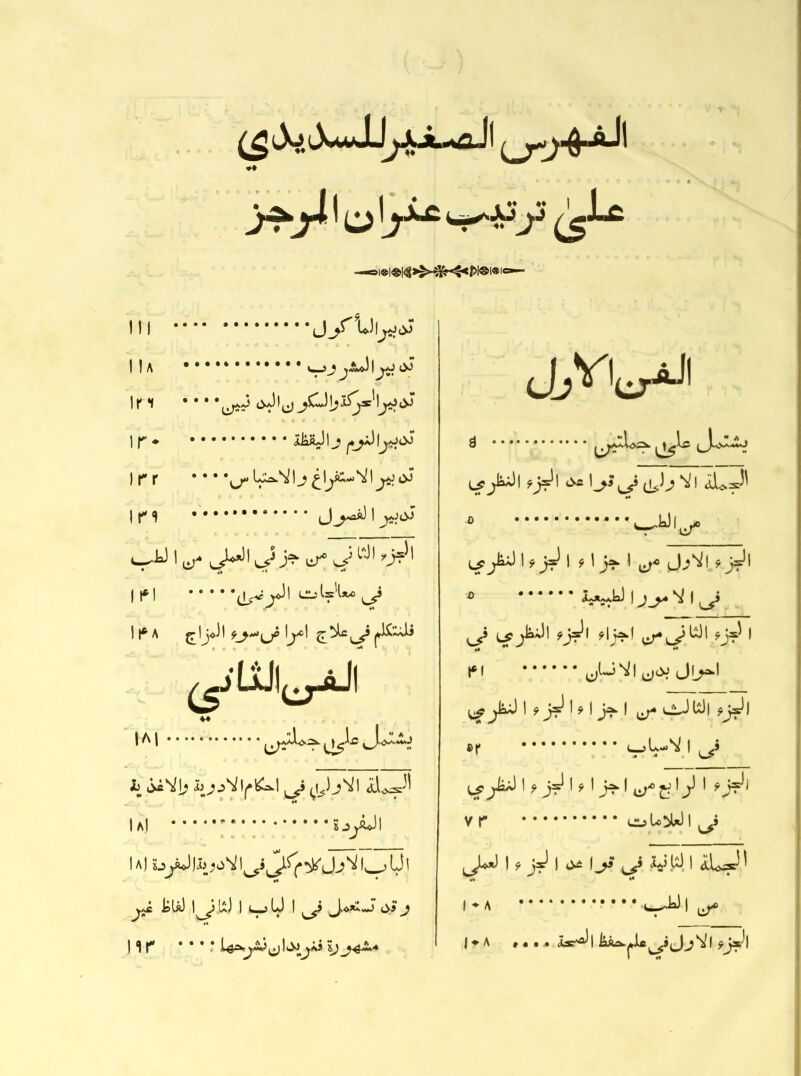 الفهرس الصغير للسديدي
على ترتيب عنوان الموجز
الفن الاول
يشتمل على جملتين ٥
الجملة الاولى في قواعد الجزء النظري
من الطب ٥
الجزء الاول من اجزاء الجزء النظري
في الامور الطبيعية ٥
الجزء الثاني من اجزاء الجزء النظري في
احوال بدن الانسان ٤١
الجزء الثالث من اجزاء الجزء النظري
في الاسباب ٥٢
الجزء الرابع من اجزاء الجزء النظري
في العلامات ٧٣
الجملة الثانية في قواعد الجزء العملي
من الطب ١٠٨
الجزء الاول في علم حفظ الصحة ١٠٨
تدبير المأكول ١١١
تدبير المشروب ١١٨
تدبير الحركة والسكون البدنيين ١٢٩
تدبير النوم واليقظة ١٣٠
تدبير الاستفراغ والاحتباس ١٣٢
تدبير الفصول ١٣٩
الجزء الثاني من جزئي العملي من الطب
في معالجات المريض ١٤١
فلنتكلم في علاج امراض سوء المزاج ١٤٨
الفن الثاني
يشتمل على جملتين ١٨١
الجملة الاولى في احكام الادوية والاغذية
المفردة ١٨١
الباب الاول كلام كلي في الادوية المفردة ١٨١
وقد يستعمل في الباب الثاني الفاظ غير
مشهورة نريد ان نشرحها ١٩٣